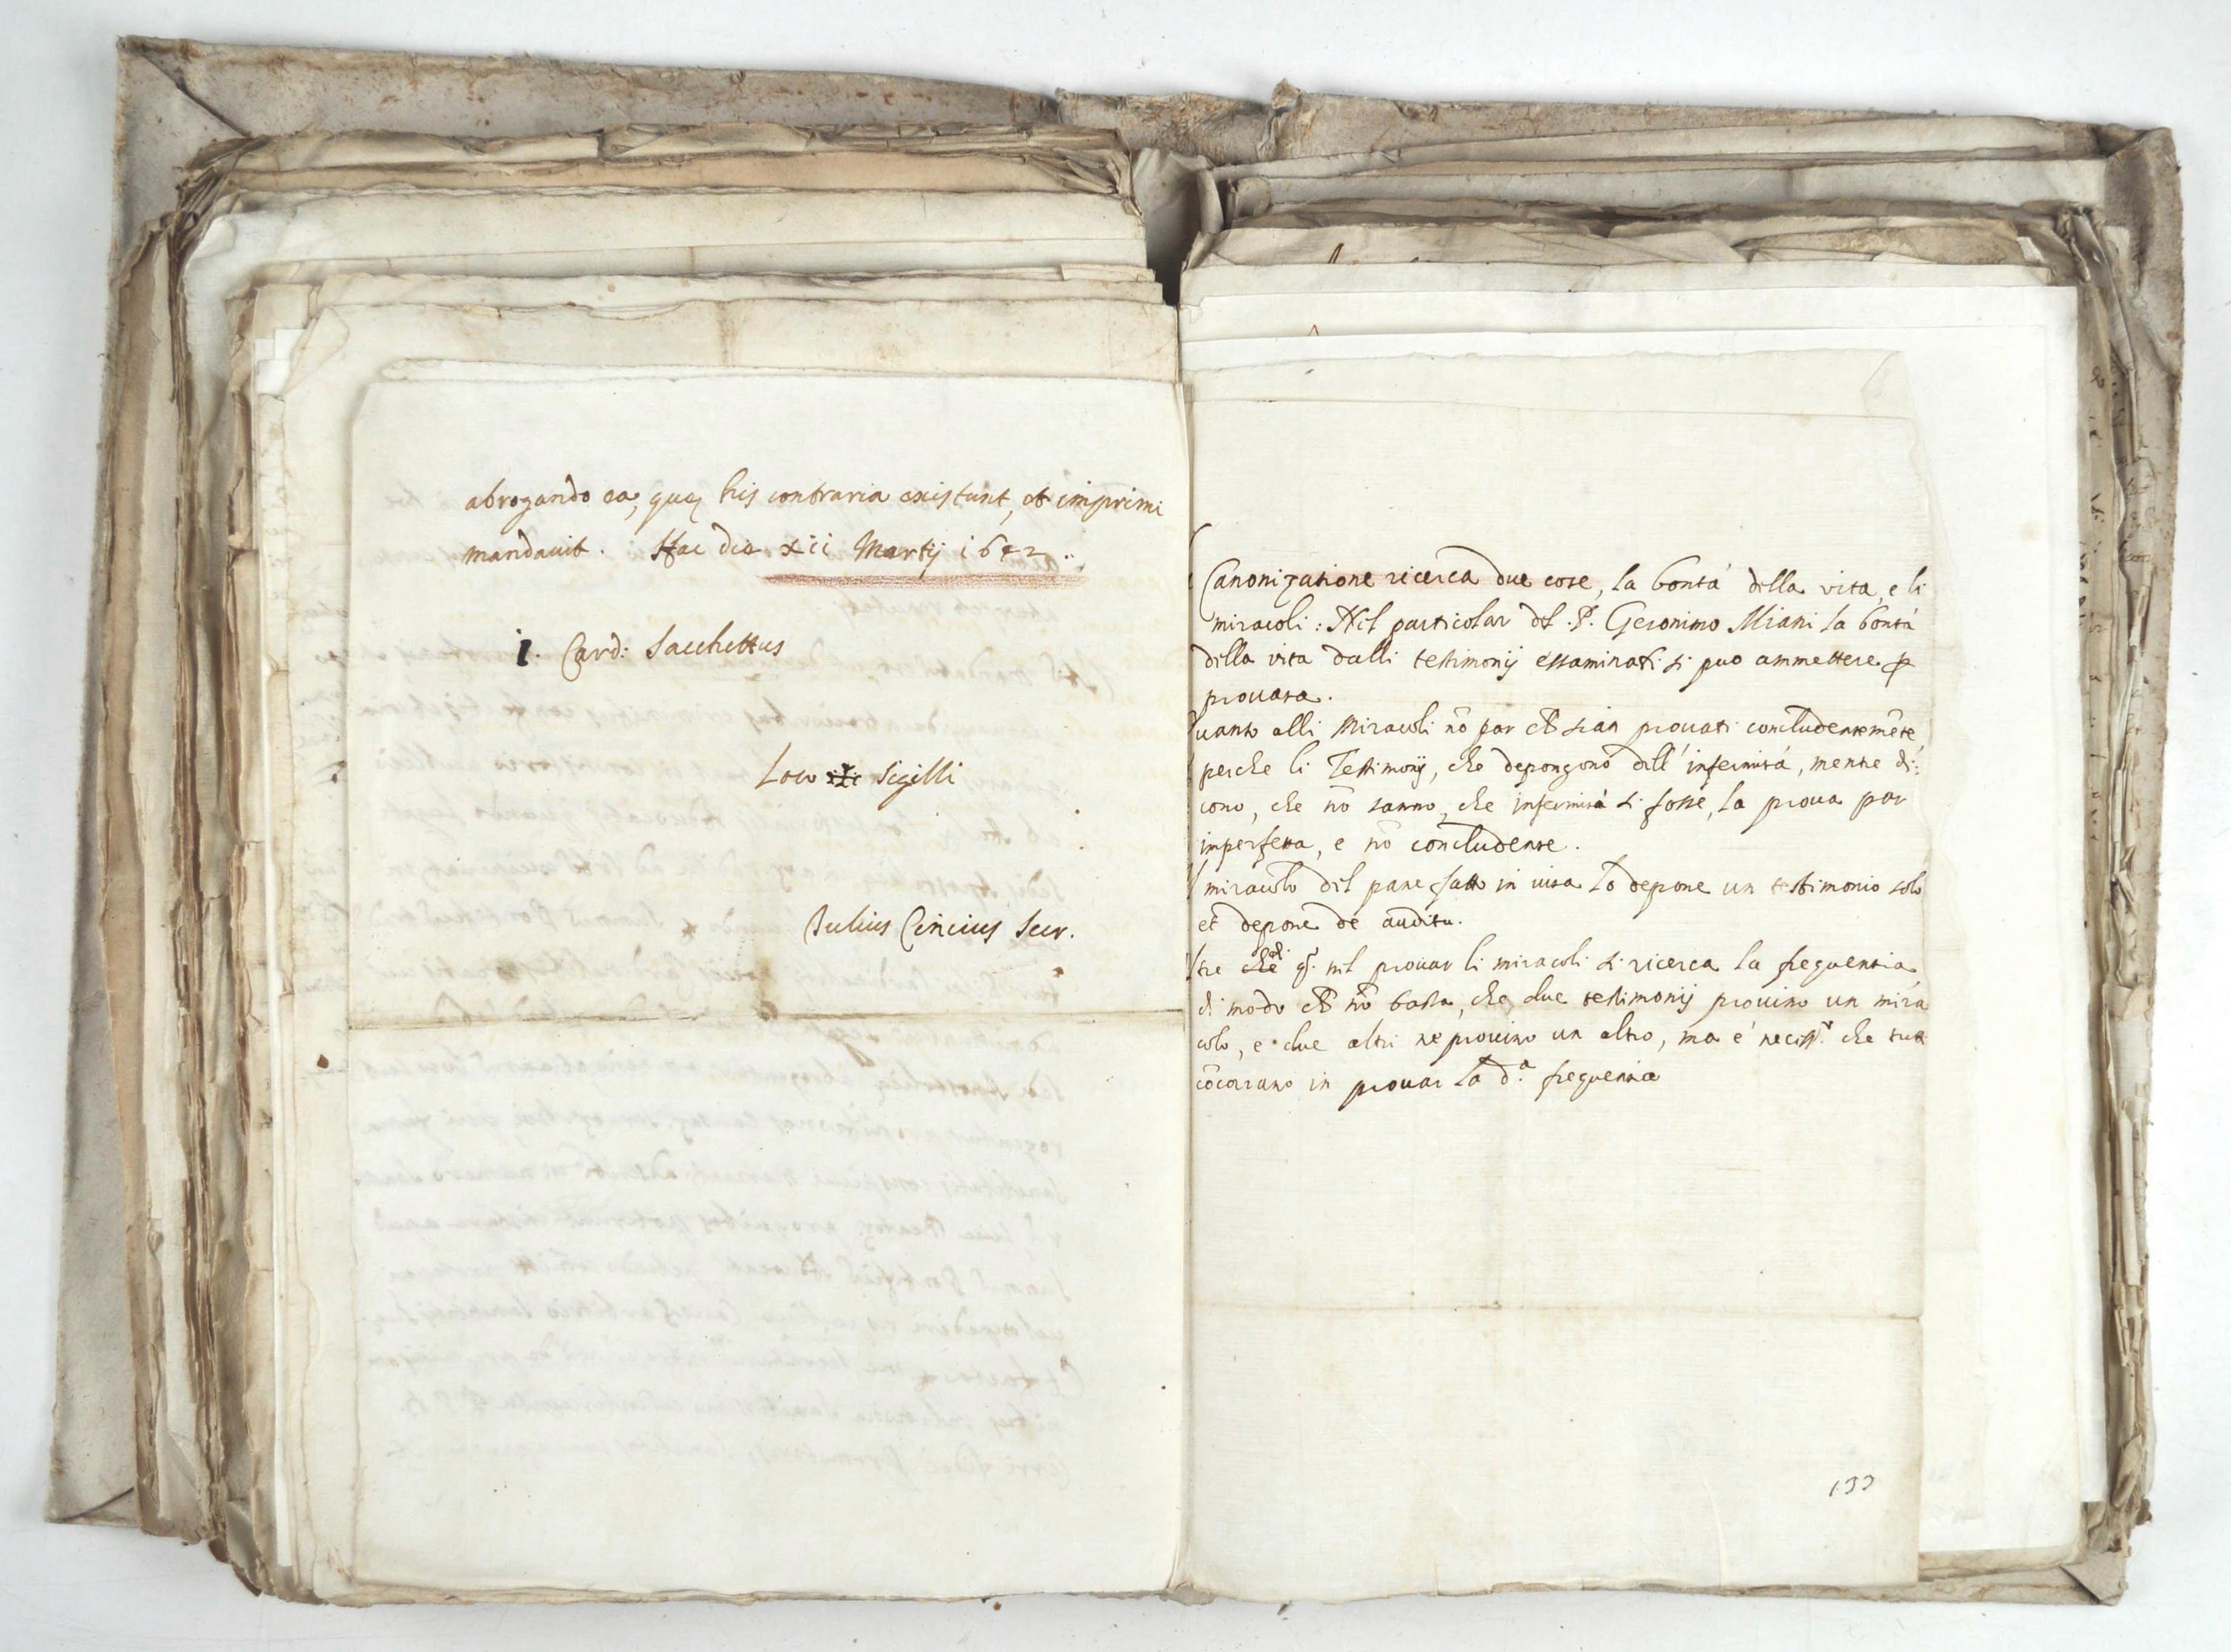 abrogando ea, quę his contraria existunt, et imprimi
mandauit. Hac die xii Martij 1642..
I. Card: Sacchettus
Loco ✠ Sigilli
Julius Cincius Secr.
Canonizatione ricerca due cose, la bontà della vita, e li
miracoli: Nel particolar del .P. Geronimo Miani la bontà
della vita dalli testimonij essaminati si puo ammettere ꝑ
prouata.
uanto alli Miracoli nō par ch sian prouati concludentemẽte
perche li Testimonij, che depongono dell' infermità, mentre di:
cono, che nō sanno, che infermità si fosse, la proua par
imperfetta, e nō concludente.
miracolo del pane fatto in uita lo depone un testimonio solo
et depone de auditu.
tre che nel prouar li miracoli si ricerca la frequentia,
di modo ch nō basta, che due testimonij prouino un mira
colo, e due altri ne prouino un altro, ma è necess.º che tutti
cōcorrano in prouar la d.ª frequentia
133